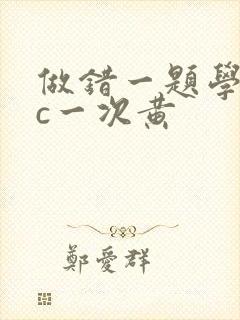 做錯一題學
c一次黃
鄭愛群